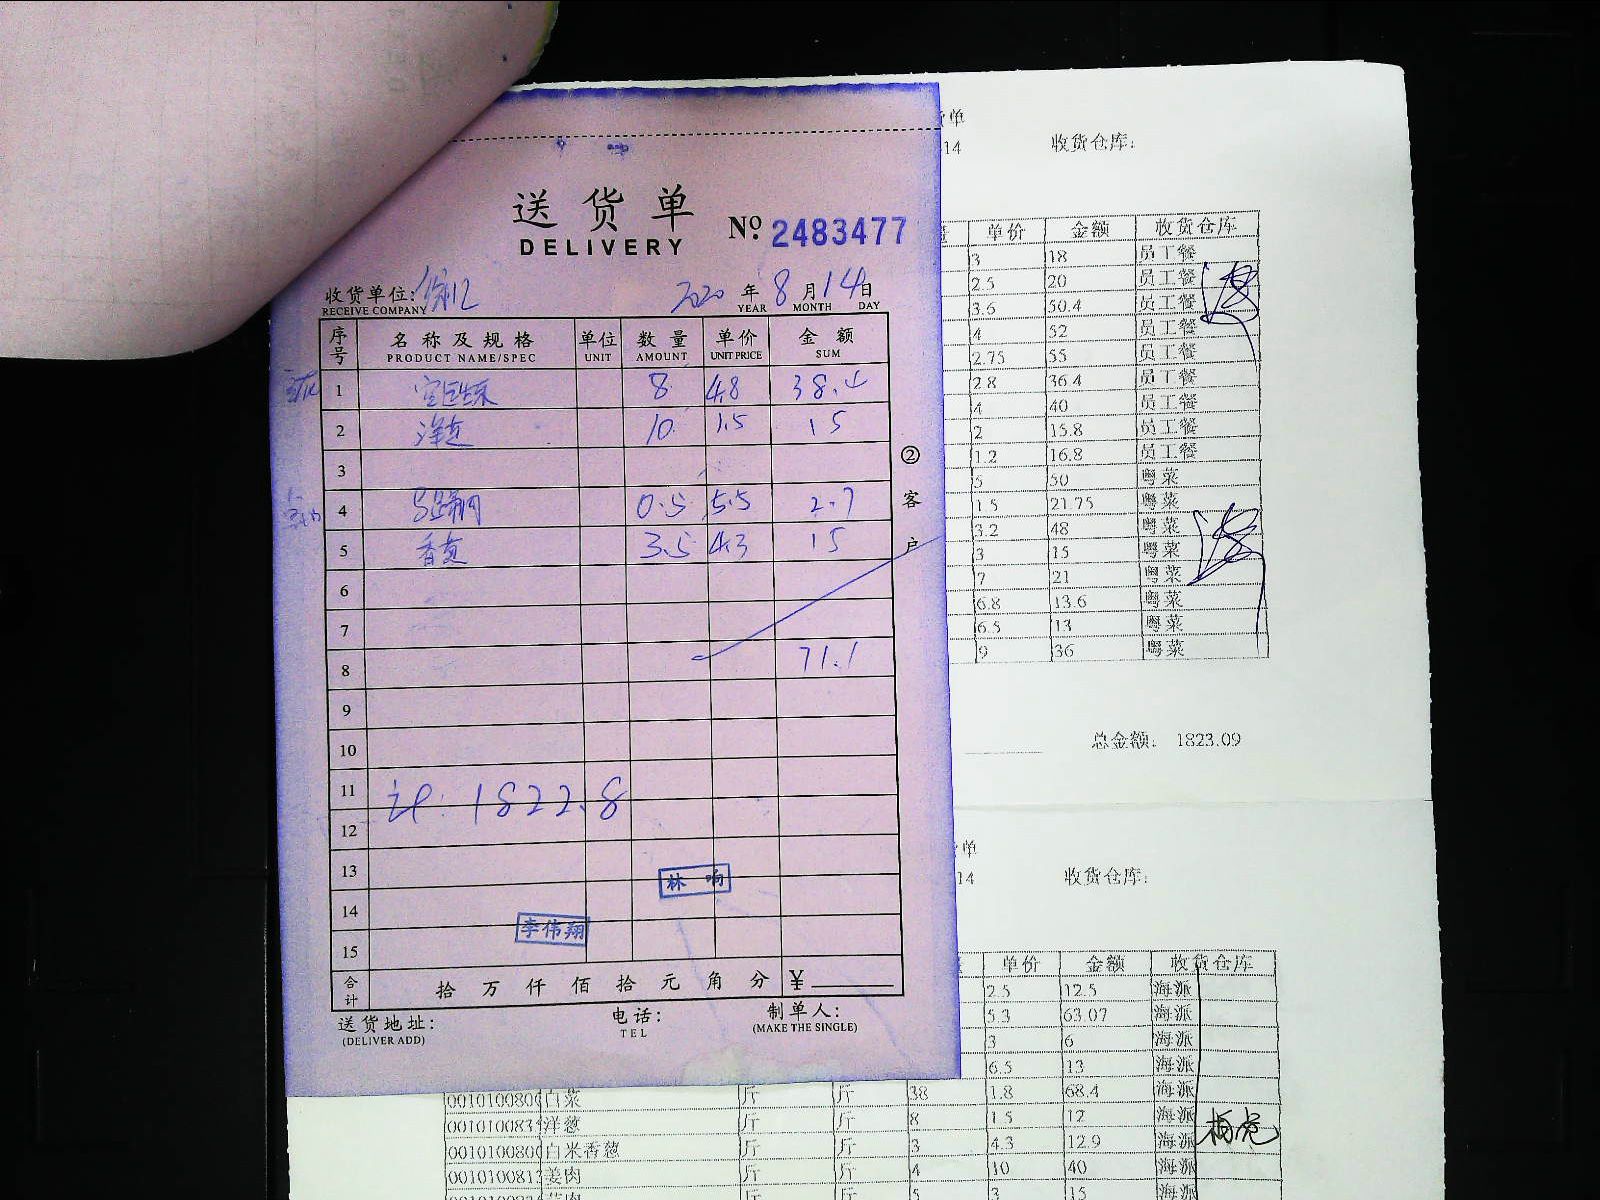 送货单
DELIVERY
No 2483477
收货单位:
RECEIVE COMPANY
2020 年 8 月 14 日
YEAR MONTH DAY
序号 名称及规格 单位 数量 单价 金额
PRODUCT NAME/SPEC UNIT AMOUNT UNIT PRICE SUM
1 8 4.8 38.4
2 洋芝 10 1.5 15
3
4 0.5 5.5 2.7
5 香芹 3.5 4.3 15
6
7
8 71.1
9
10
11
12
计: 1822.8
13
林响
14
李伟翔
15
合计 拾 万 仟 佰 拾 元 角 分 ¥
送货地址: 电话: 制单人:
(DELIVER ADD) TEL (MAKE THE SINGLE)
② 客户
单
14 收货仓库:
单价 金额 收货仓库
3 18 员工餐
2.5 20 员工餐
3.6 50.4 员工餐
4 52 员工餐
2.75 55 员工餐
2.8 36.4 员工餐
4 40 员工餐
2 15.8 员工餐
1.2 16.8 员工餐
5 50 粤菜
1.5 21.75 粤菜
3.2 48 粤菜
3 15 粤菜
7 21 粤菜
6.8 13.6 粤菜
6.5 13 粤菜
9 36 粤菜
总金额: 1823.09
单
14 收货仓库:
单价 金额 收货仓库
2.5 12.5 海派
5.3 63.07 海派
3 6 海派
6.5 13 海派
白菜 斤 斤 38 1.8 68.4 海派
洋葱 斤 斤 8 1.5 12 海派
白米香葱 斤 斤 3 4.3 12.9 海派
姜肉 斤 斤 4 10 40 海派
斤 斤 5 3 15 海派